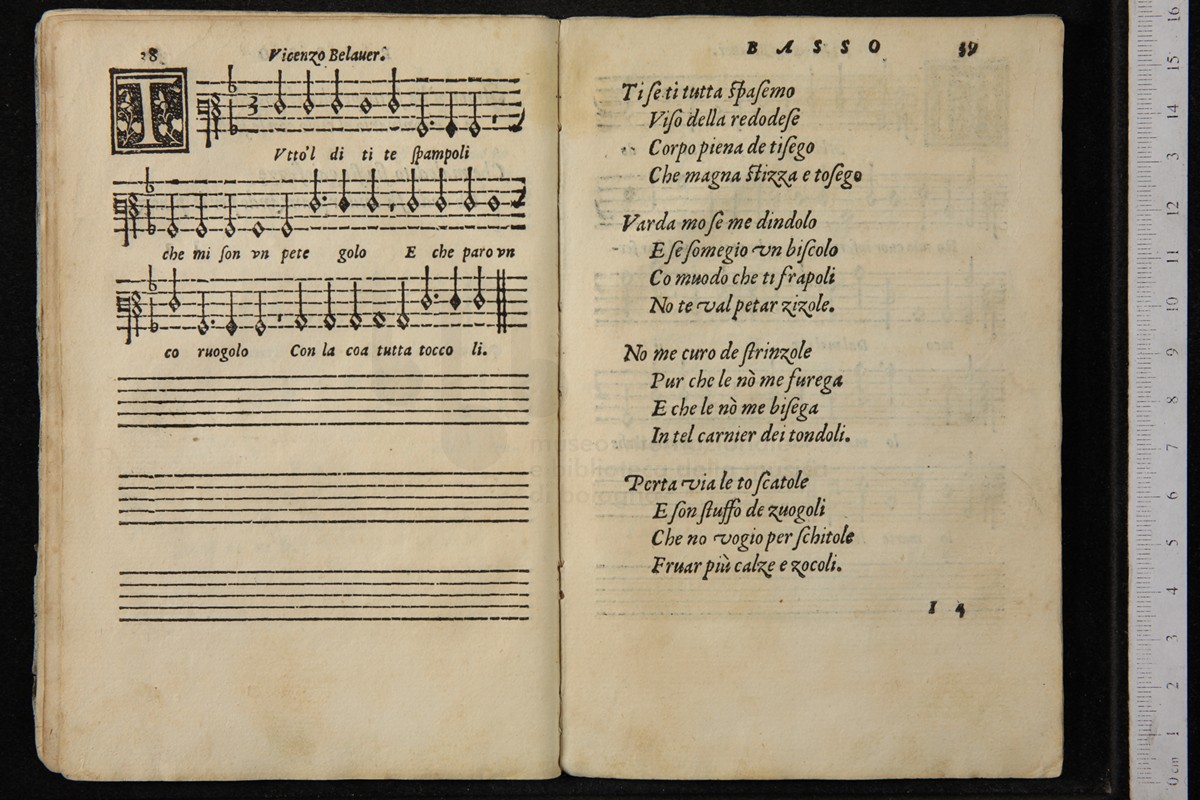 28
Vicenzo Belauer.
T
Vtto'l di ti te ſpampoli
che mi ſon vn pete golo E che paro vn
co ruogolo Con la coa tutta tocco li.
BASSO
59
Ti ſe ti tutta ſpaſemo
Viſo della redodeſe
Corpo piena de tiſego
Che magna ſtizza e toſego
Varda mo ſe me dindolo
E ſe ſomegio vn biſcolo
Co muodo che ti frapoli
No te val petar zizole.
No me curo de ſtrinzole
Pur che le nò me furega
E che le nò me biſega
In tel carnier dei tondoli.
Porta via le to ſcatole
E ſon ſtuffo de zuogoli
Che no vogio per ſchitole
Fruar più calze e zocoli.
I 4
museo internazionale
e biblioteca della musica
di bologna
16
15
14
13
12
11
10
9
8
7
6
5
4
3
2
1
0 cm